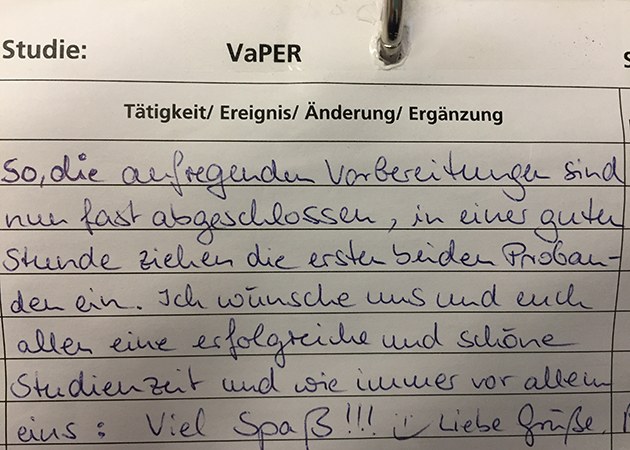 Studie: VaPER
Tätigkeit/ Ereignis/ Änderung/ Ergänzung
So, die aufregenden Vorbereitungen sind
nun fast abgeschlossen, in einer guten
Stunde ziehen die ersten beiden Proban-
den ein. Ich wünsche uns und euch
allen eine erfolgreiche und schöne
Studienzeit und wie immer vor allem
eins: Viel Spaß!!! Liebe Grüße